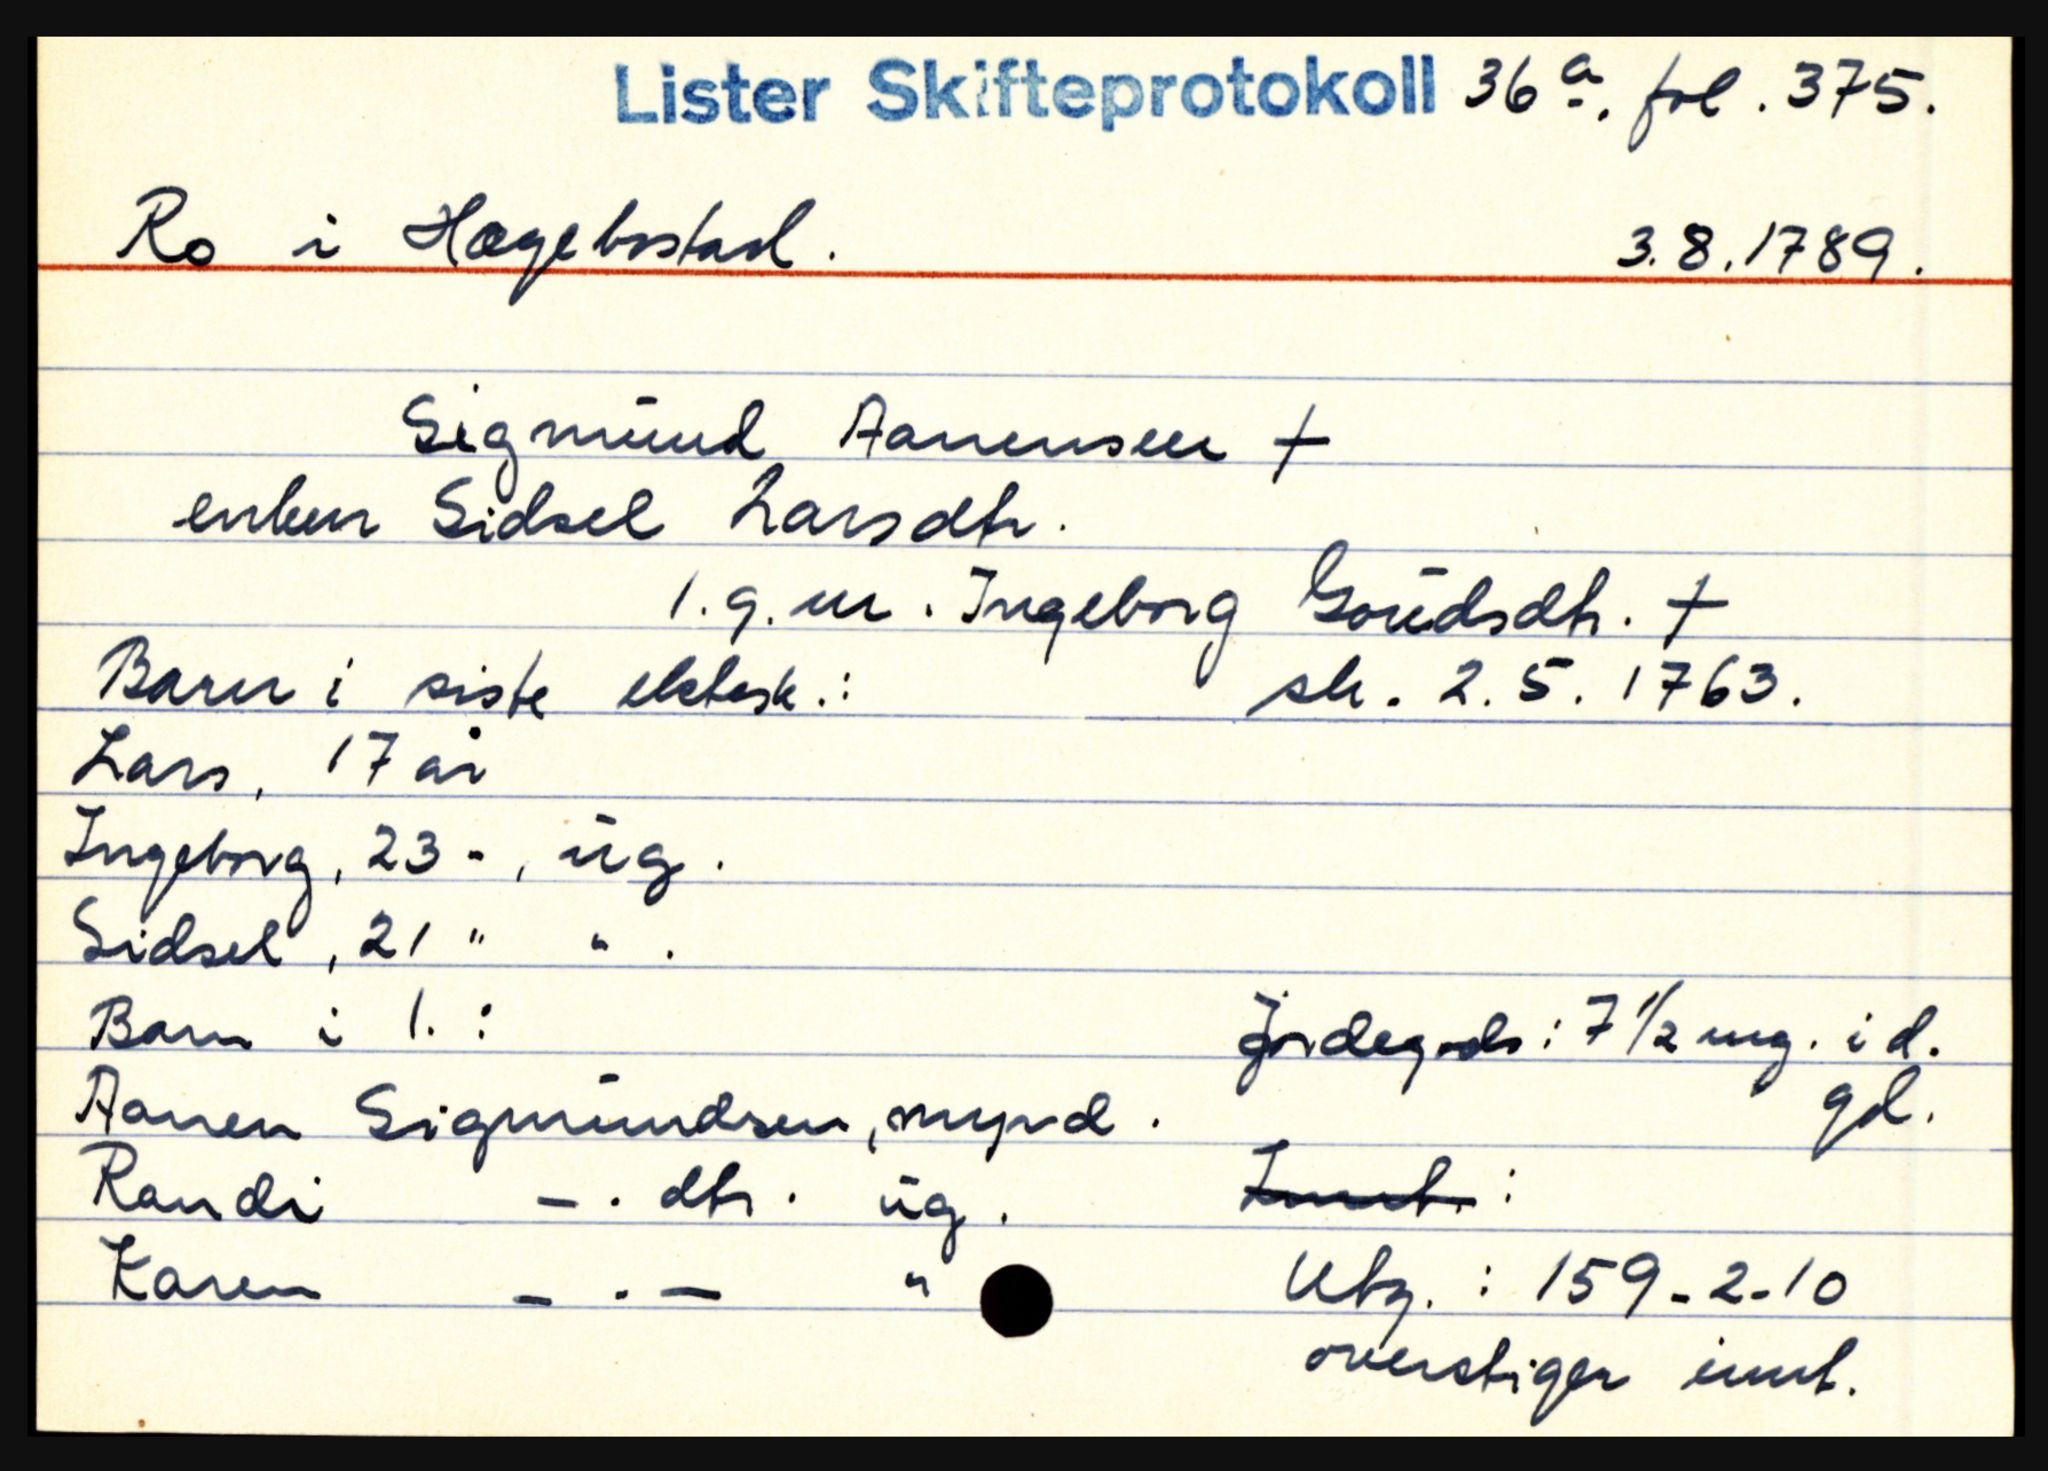 Lister Skifteprotokoll 36 a. fol. 375.
Ro i Hægebostad. 3.8.1789.
Sigmund Aanensen +
enken Sidsel Larsdtr.
1. g. m. Ingeborg Goudsdtr. +
Barn i siste ektesk.: sk. 2.5.1763.
Lars, 17 år
Ingeborg, 23 -, ug.
Sidsel, 21 " " .
Barn i 1. : Jordegods: 7 1/2 mg. i d.
gd.
Aanen Sigmundsen, mynd.
Randi - . dtr. ug. Innt. :
Karen - . - "
Utg. : 159-2-10
overstiger innt.